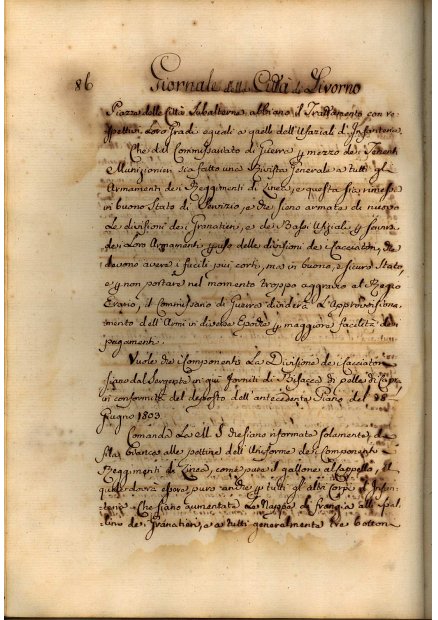 86 Giornale della Città di Livorno
Piazze delle Città Subalterne abbiano il Trattamento con re-
spettivi Loro Gradi eguali a quello dell'Ufiziali d'Infanteria.
Che dal Commissariato di Guerra p mezzo dei Tenenti
Munizionieri sia fatto una Rivista Generale a tutti gl'
Armamenti dei Reggimenti di Linea, e questa sia rimessa
in buono Stato di Servizio, e che sieno armate di nuovo
Le divisioni de i Granatieri, e de Bassi Ufiziali, p
de Loro Armamenti p uso delle divisioni de i Cacciatori, che
devono avere i fucili più corti, ma in buono, e sicuro Stato,
e p non portare nel momento troppo aggravio al Regio
Erario, il Commissario di Guerra dividerà L'Approvvisiona-
mento dell'Armi in diverse Epoche p maggiore facilità dei
pagamenti.
Vuole che i Componenti La Divisione de i Cacciatori
siano dal Sergente in qui forniti di Bisacce di pelle di Capra
in conformità del disposto dall'antecedente Piano del 28
Giugno 1803
Comanda La M. S. che siano riformata solamente
alle pettine dell'Uniforme dei Componenti i
Reggimenti di Linea, come pure il gallone al Cappello, il
quale dovrà essere puro anche p tutti gl'altri Corpi d'Infan-
teria. Che siano aumentata La Nappa di frangia alle Spal-
line de i Granatieri, e a tutti generalmente tre bottoni